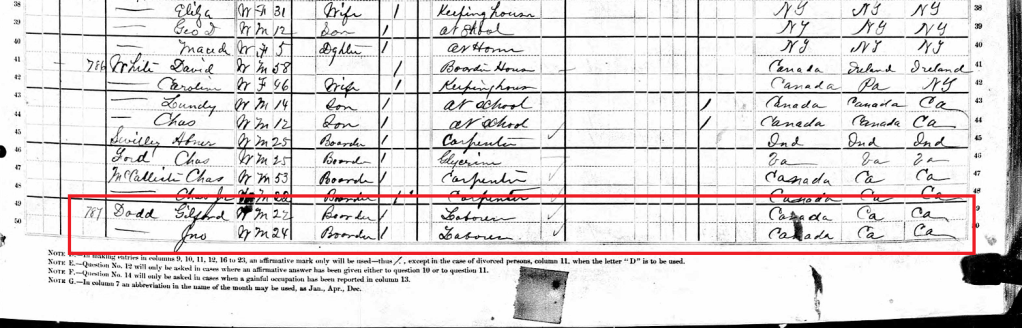 38 — Eliza W F 31 Wife / Keeping house NY NY NY 38
39 Geo D W M 12 Son / at school NY NY NY 39
40 — W F 5 Dghter / at Home NY NY NY 40
41 786 White David W M 58 / Boardin House — Canada Ireland Ireland 41
42 — Carolin W F 46 Wife / Keeping house Canada Pa NY 42
43 — Lundy W M 14 Son / at school / Canada Canada Ca 43
44 — Chas W M 12 Son / at school / Canada Canada Ca 44
45 Abner W M 25 Boarder / Carpenter Ind Ind Ind 45
46 Ford Chas W M 25 Boarder / Glycerin Va Va 46
47 McCallister Chas W M 53 Boarder / Carpenter Canada Ca Ca 47
48 — Chas Jr M 22 Boarder / Carpenter Canada Ca Ca 48
49 787 Dodd Gilford W M 22 Boarder / Laborer Canada Ca Ca
50 — Jno W M 24 Boarder / Laborer Canada Ca Ca
making entries in columns 9, 10, 11, 12, 16 to 23, an affirmative mark only will be used—thus /, except in the case of divorced persons, column 11, when the letter "D" is to be used.
NOTE E.—Question No. 12 will only be asked in cases where an affirmative answer has been given either to question 10 or to question 11.
NOTE F.—Question No. 14 will only be asked when a gainful occupation has been reported in column 13.
NOTE G.—In column 7 an abbreviation in the name of the month may be used, as Jan., Apr., Dec.